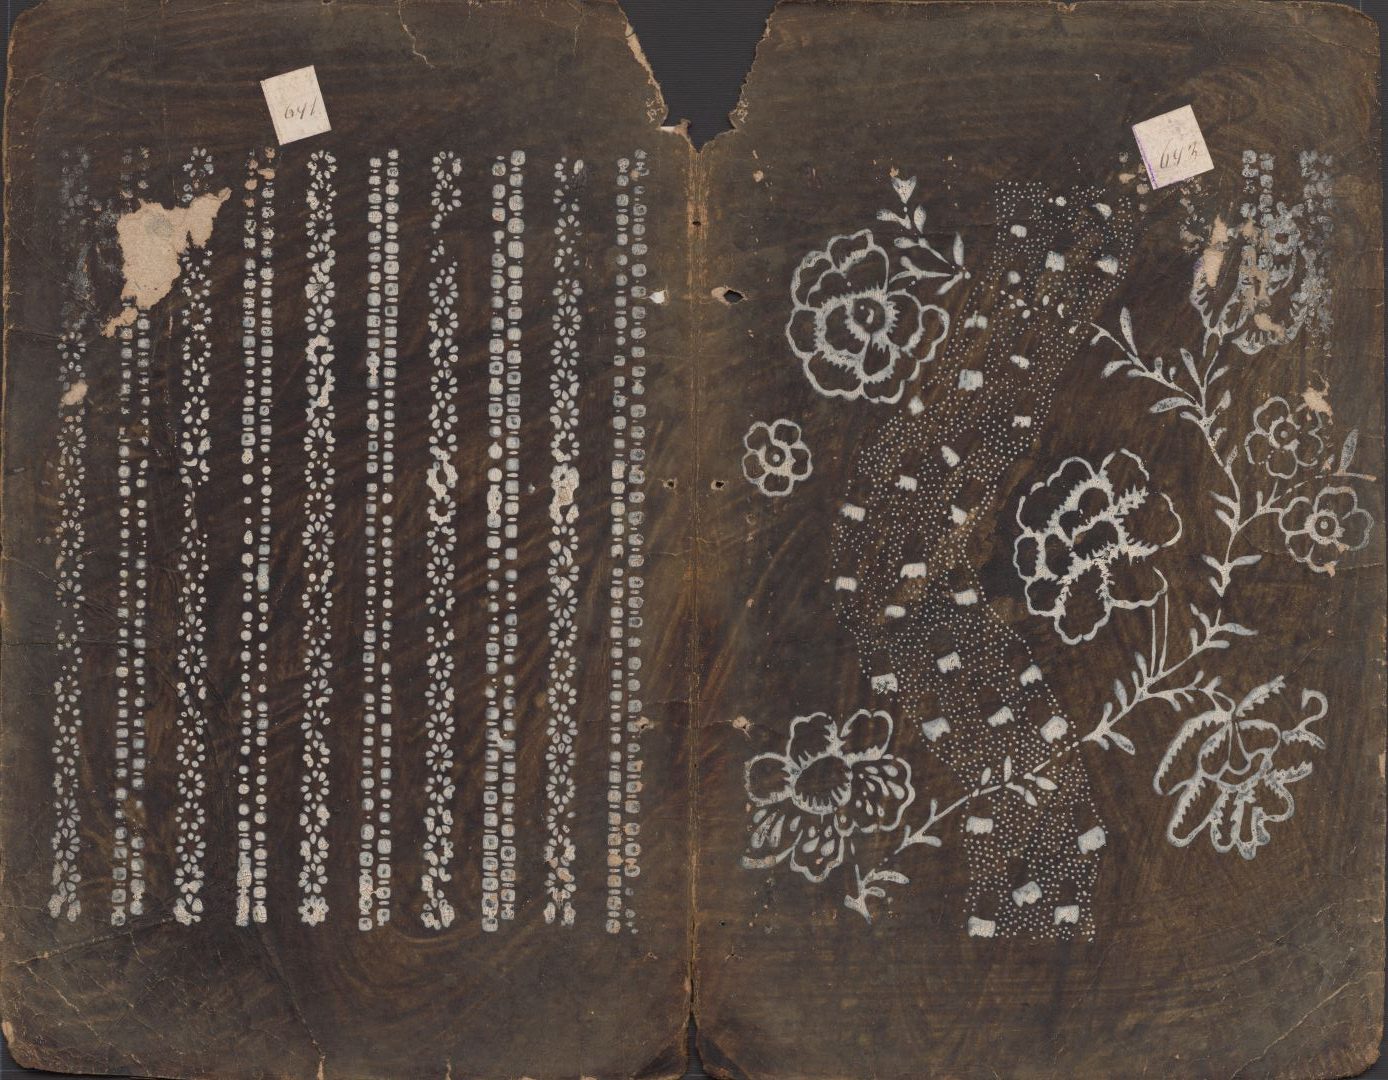 641
642